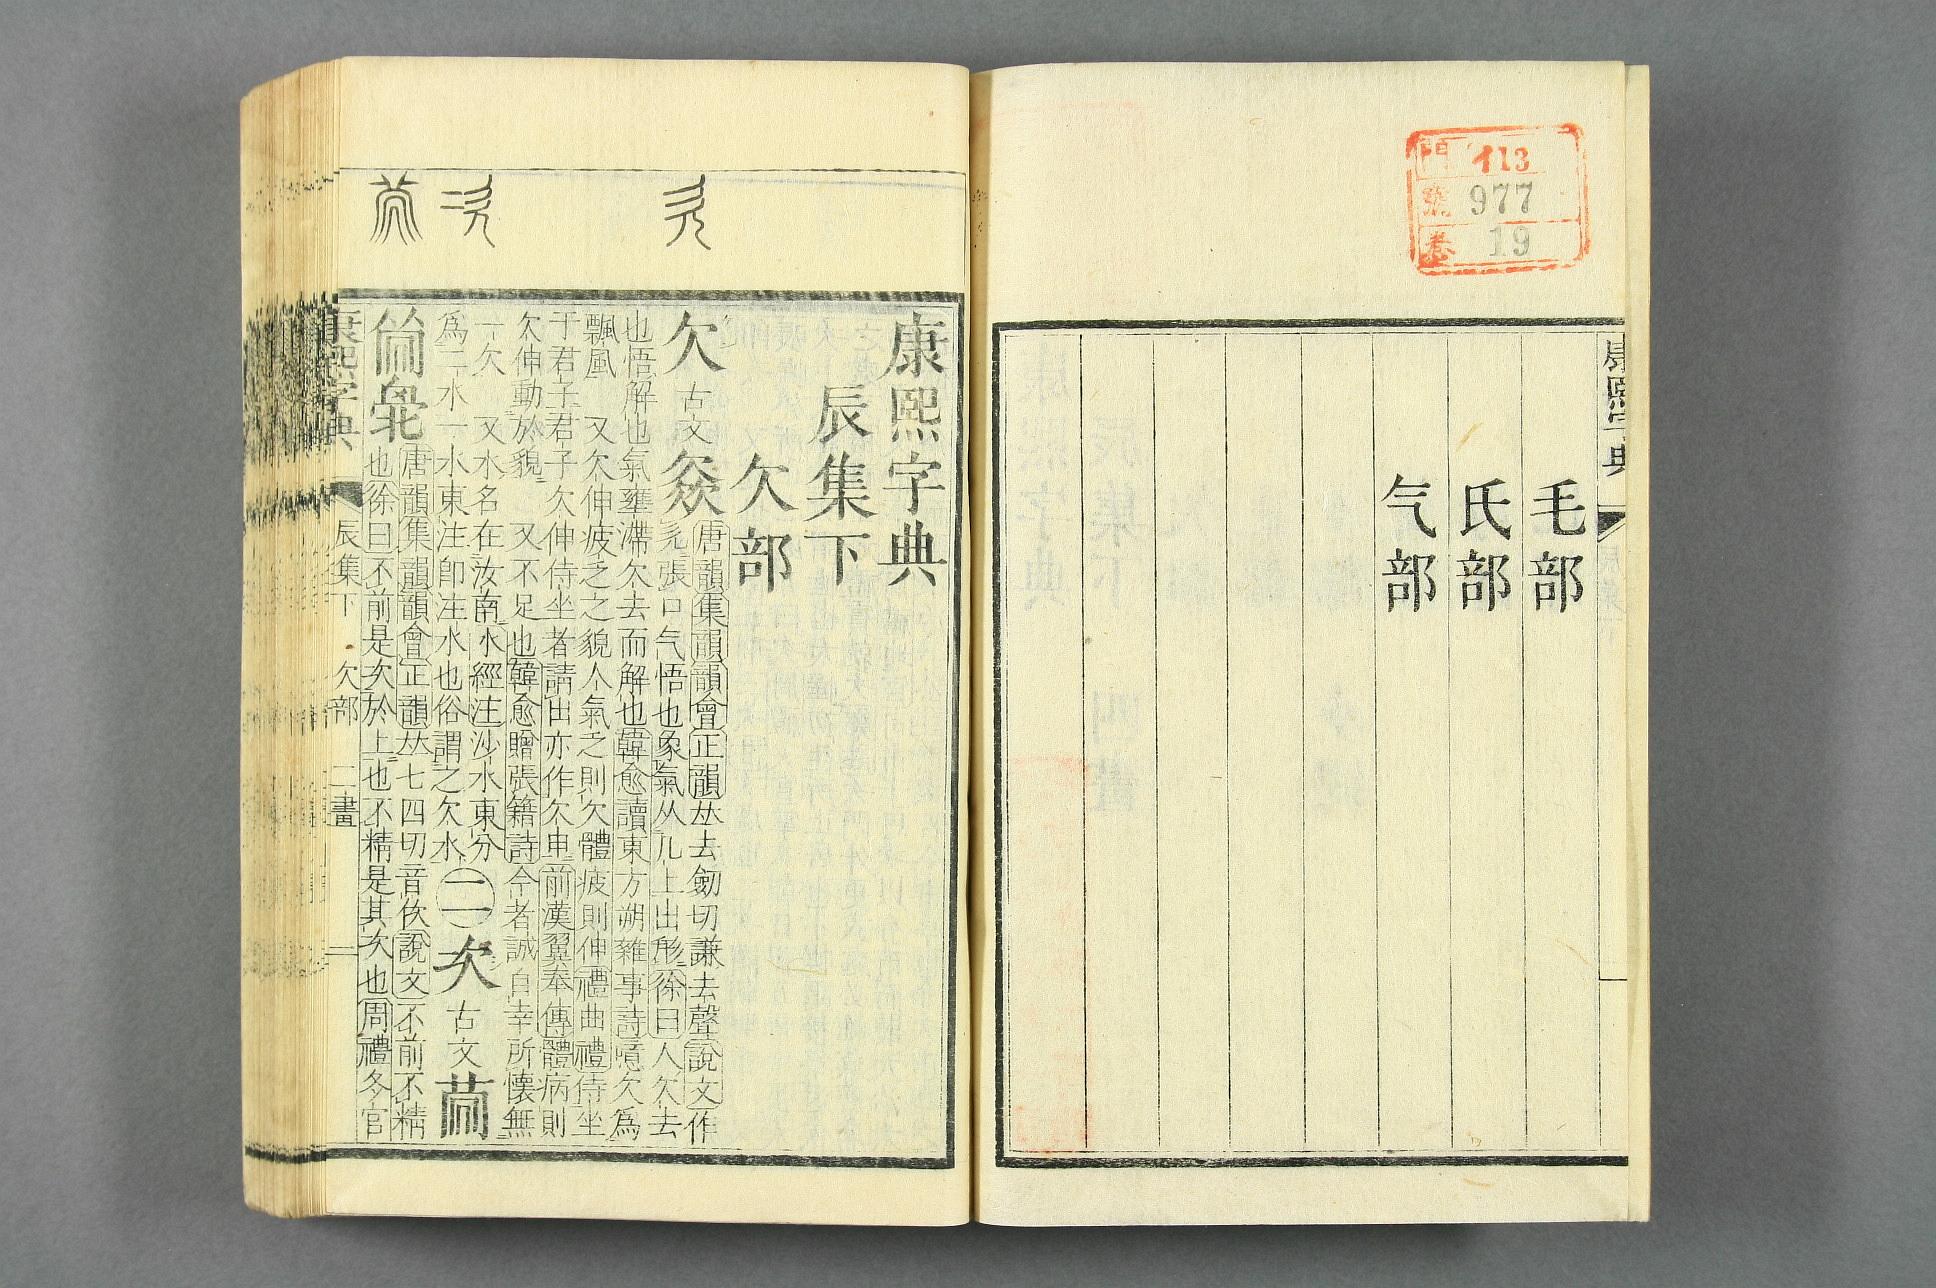 門 113
號 977
卷 19
康熙字典
毛部
氏部
气部
康熙字典
辰集下
欠部
欠 古文 唐韻集韻韻會正韻𠀤去劒切謙去聲說文作
張口气悟也象氣从儿上出形徐曰人欠去
也悟解也氣壅滯欠去而解也韓愈讀東方朔雜事詩噫欠爲
飄風 又欠伸疲乏之貌人氣乏則欠體疲則伸禮曲禮侍坐
于君子君子欠伸侍坐者請出亦作欠申前漢翼奉傳體病則
欠伸動於貌 又不足也韓愈贈張籍詩今者誠自幸所懷無
一欠 又水名在汝南水經注沙水東分
爲二水一水東注卽注水也俗謂之欠水 二 次 古文
唐韻集韻韻會正韻𠀤七四切音佽說文不前不精
也徐曰不前是次於上也不精是其次也周禮冬官
康熙字典 辰集下 欠部 二畫 一